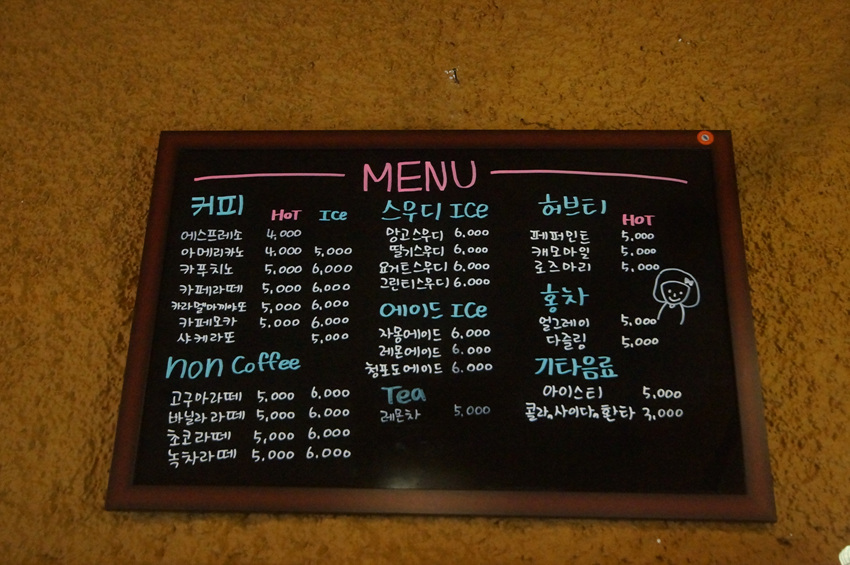 MENU
커피 HOT ICe
에스프레소 4,000
아메리카노 4,000 5,000
카푸치노 5,000 6,000
카페라떼 5,000 6,000
카라멜마끼아또 5,000 6,000
카페모카 5,000 6,000
샤케라또 5,000
non Coffee
고구마라떼 5,000 6,000
바닐라라떼 5,000 6,000
초코라떼 5,000 6,000
녹차라떼 5,000 6,000
스무디 ICe
망고스무디 6,000
딸기스무디 6,000
요거트스무디 6,000
그린티스무디 6,000
에이드 ICe
자몽에이드 6,000
레몬에이드 6,000
청포도에이드 6,000
Tea
레몬차 5,000
허브티 HOT
페퍼민트 5,000
캐모마일 5,000
로즈마리 5,000
홍차
얼그레이 5,000
다즐링 5,000
기타음료
아이스티 5,000
콜라,사이다,환타 3,000